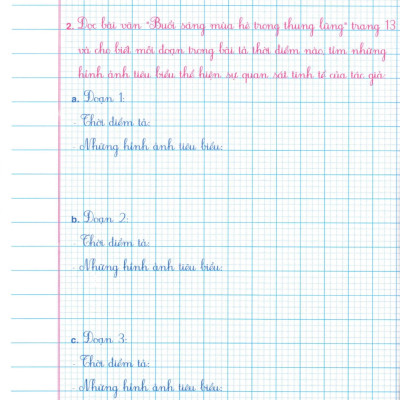 2. Đọc bài văn "Buổi sáng mùa hè trong thung lũng" trang 13
và cho biết mỗi đoạn trong bài tả thời điểm nào, tìm những
hình ảnh tiêu biểu thể hiện sự quan sát tinh tế của tác giả:
a. Đoạn 1:
- Thời điểm tả:
- Những hình ảnh tiêu biểu:
b. Đoạn 2:
- Thời điểm tả:
- Những hình ảnh tiêu biểu:
c. Đoạn 3:
- Thời điểm tả:
- Những hình ảnh tiêu biểu: